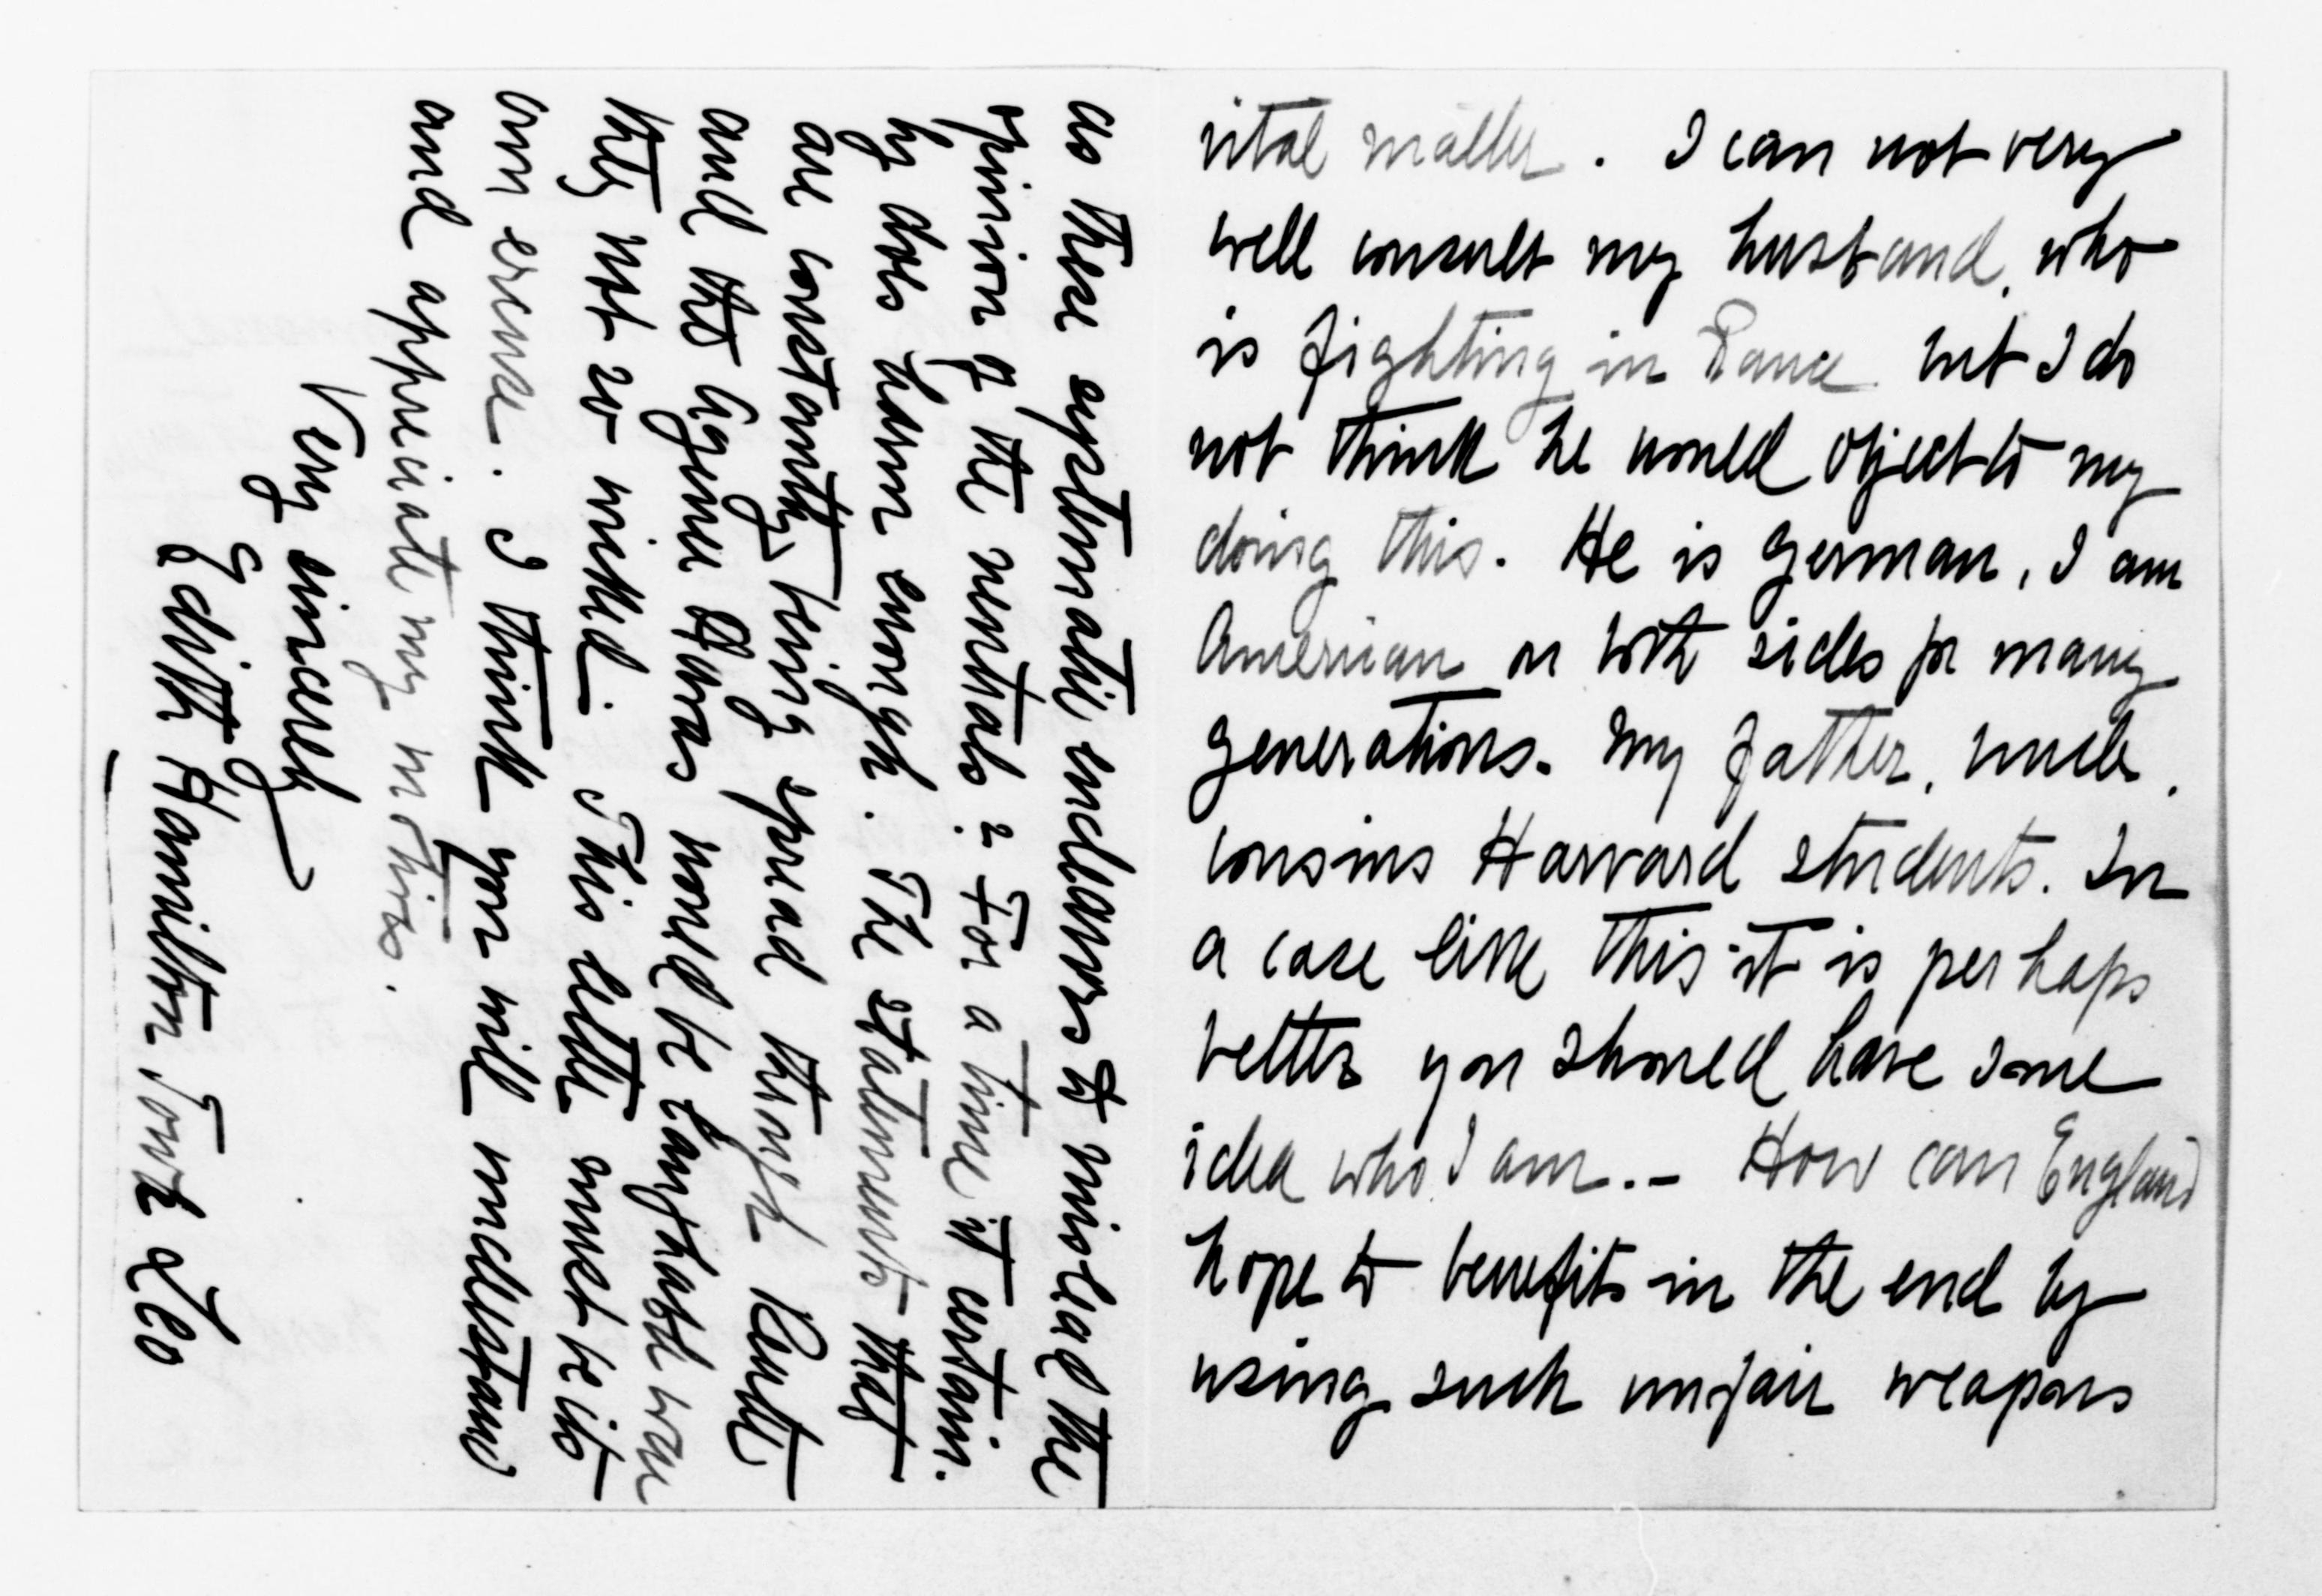 vital matter. I can not very
well consult my husband, who
is fighting in France but I do
not think he would object to my
doing this. He is German, I am
American on both sides for many
generations. My father, uncle,
cousins Harvard students. In
a case like this it is perhaps
better you should have some
idea who I am.–  How can England
hope to benefit in the end by
using such unfair weapons
as these systematic endeavors to mislead the
opinion of the neutrals? For a time it certain-
ly does harm enough. The statements that
are constantly being spread through Reuter
and the Agence Havas would be laughable were
they not so wicked. This letter must be its
own excuse. I think you will understand
and appreciate my motives.
Very sincerely
Edith Hamilton